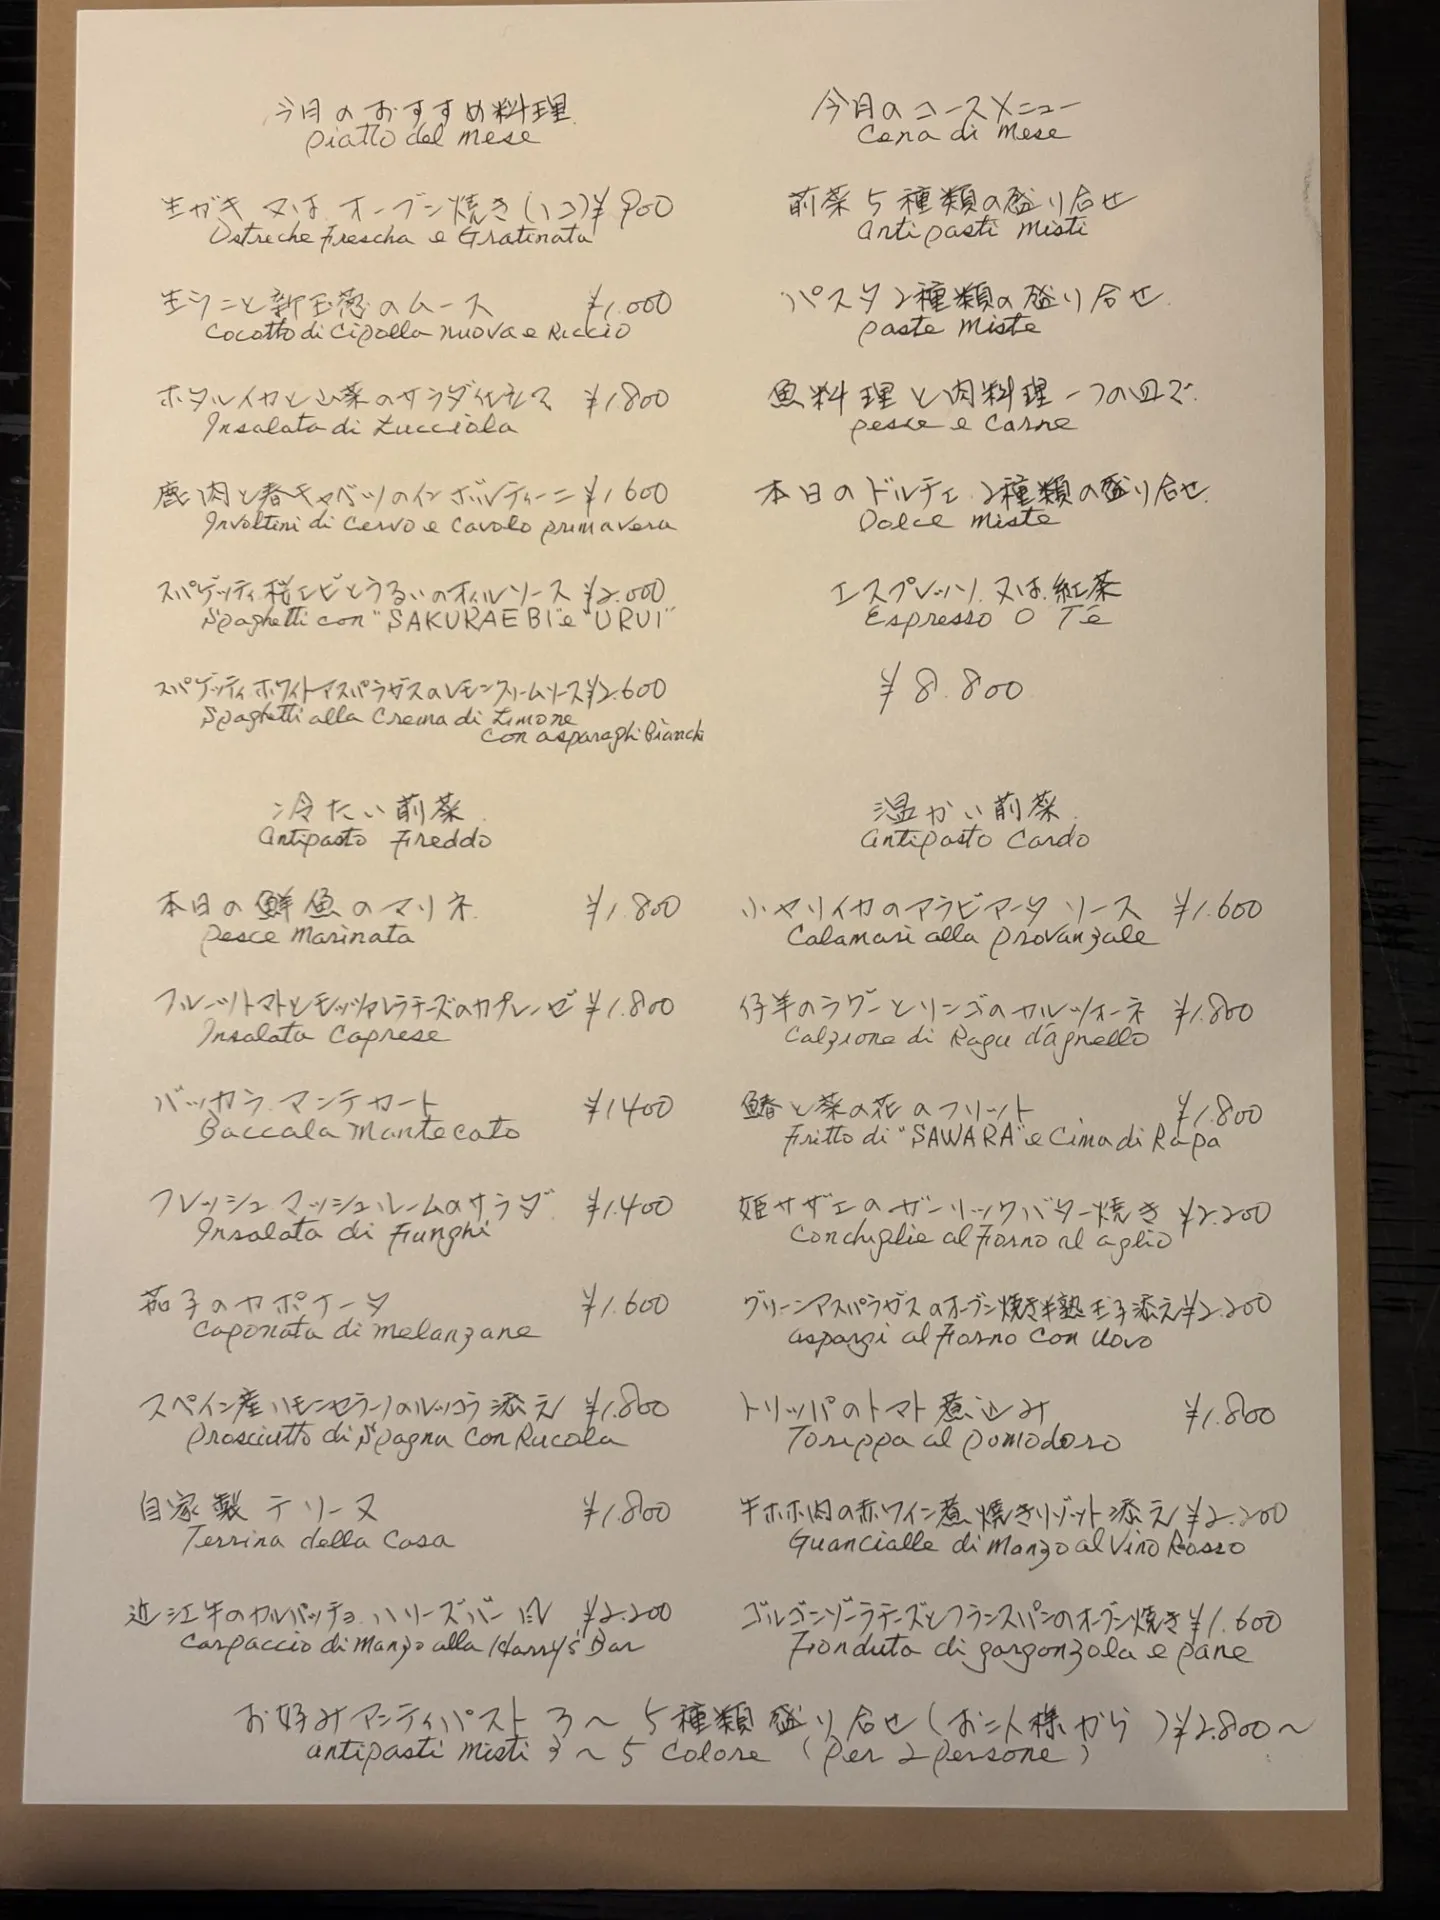 今月のおすすめ料理
piatto del mese
生ガキ 又は オーブン焼き(1コ)¥900
Ostreche Frescha e Gratinata
生ウニと新玉葱のムース ¥1.000
Cocotto di Cipolla nuova e Riccio
ホタルイカと山菜のサラダ仕立て ¥1.800
Insalata di Lucciola
鹿肉と春キャベツのインボルティーニ ¥1600
Involtini di Cervo e Cavolo primavera
スパゲッティ 桜エビとうるいのオイルソース ¥2.000
Spaghetti con "SAKURAEBI" e "URUI"
スパゲッティ ホワイトアスパラガスのレモンクリームソース ¥2.600
Spaghetti alla Crema di Limone
con asparaghi Bianchi
今月のコースメニュー
Cena di Mese
前菜5種類の盛り合せ
antipasti Misti
パスタ2種類の盛り合せ
paste Miste
魚料理と肉料理一つの皿で
pesce e Carne
本日のドルチェ 2種類の盛り合せ
Dolce Miste
エスプレッソ 又は 紅茶
Espresso O Té
¥8.800
冷たい前菜
antipasto Freddo
本日の鮮魚のマリネ ¥1.800
Pesce Marinata
フルーツトマトとモッツァレラチーズのカプレーゼ ¥1.800
Insalata Caprese
バッカラ マンテカート ¥1400
Baccala Mantecato
フレッシュ マッシュルームのサラダ ¥1.400
Insalata di Funghi
茄子のカポナータ ¥1.600
Caponata di melanzane
スペイン産ハモンセラーノのルッコラ添え ¥1.800
Prosciutto di Spagna Con Rucola
自家製テリーヌ ¥1.800
Terrina della Casa
近江牛のカルパッチョ ハリーズバー風 ¥2.200
Carpaccio di Manzo alla Harry's Bar
温かい前菜
antipasto Cardo
小ヤリイカのアラビアータ ソース ¥1.600
Calamari alla provanzale
仔羊のラグーとリンゴのカルツォーネ ¥1.800
Calzione di Ragu d'agnello
鰆と菜の花のフリット ¥1.800
Fritto di "SAWARA" e Cima di Rapa
姫サザエのガーリックバター焼き ¥2.200
Conchiglie al Forno al aglio
グリーンアスパラガスのオーブン焼き半熟玉子添え ¥2.200
aspargi al Forno Con Uovo
トリッパのトマト煮込み ¥1.800
Torippa al pomodoro
牛ホホ肉の赤ワイン煮 焼きリゾット添え ¥2.200
Guancialle di Manzo al Vino Rosso
ゴルゴンゾーラチーズとフランスパンのオーブン焼き ¥1.600
Fonduta di gorgonzola e pane
お好みアンティパスト 3〜5種類盛り合せ(お二人様から)¥2.800〜
antipasti misti 3〜5 Colore (Per 2 persone)